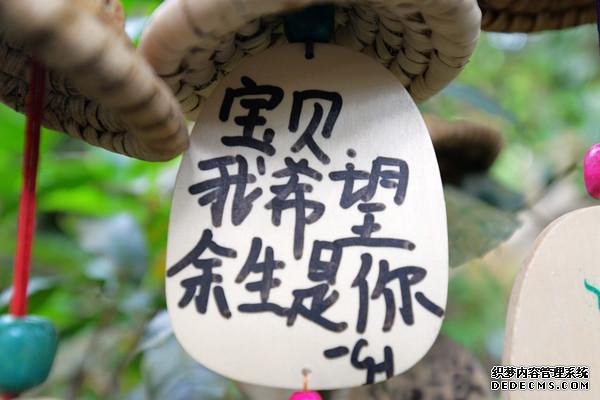 宝贝
我希望
余生是你
织梦内容管理系统
DEDECMS.COM